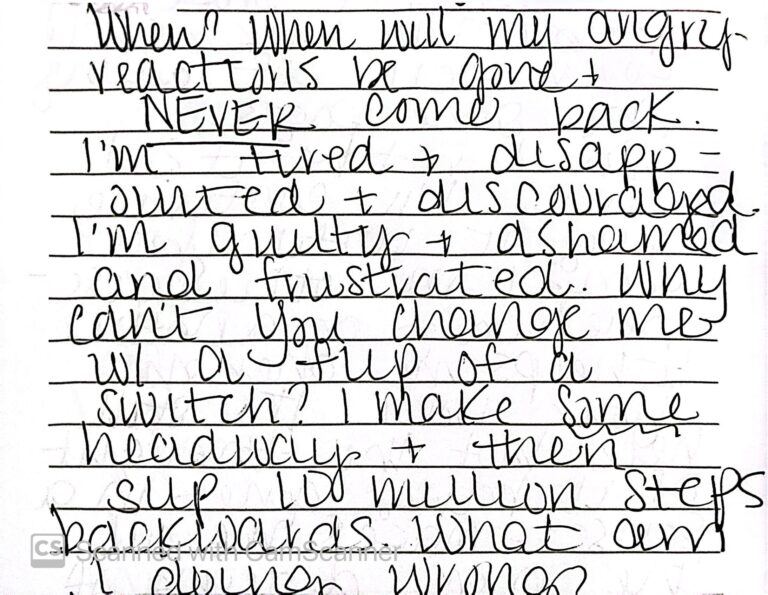 When? When will my angry
reactions be gone +
NEVER come back.
I'm tired + disapp-
ointed + discouraged.
I'm guilty + ashamed
and frustrated. Why
can't you change me
w/ a flip of a
switch? I make some
headway + then
slip 10 million steps
backwards. What am
I doing wrong?
CS Scanned with CamScanner